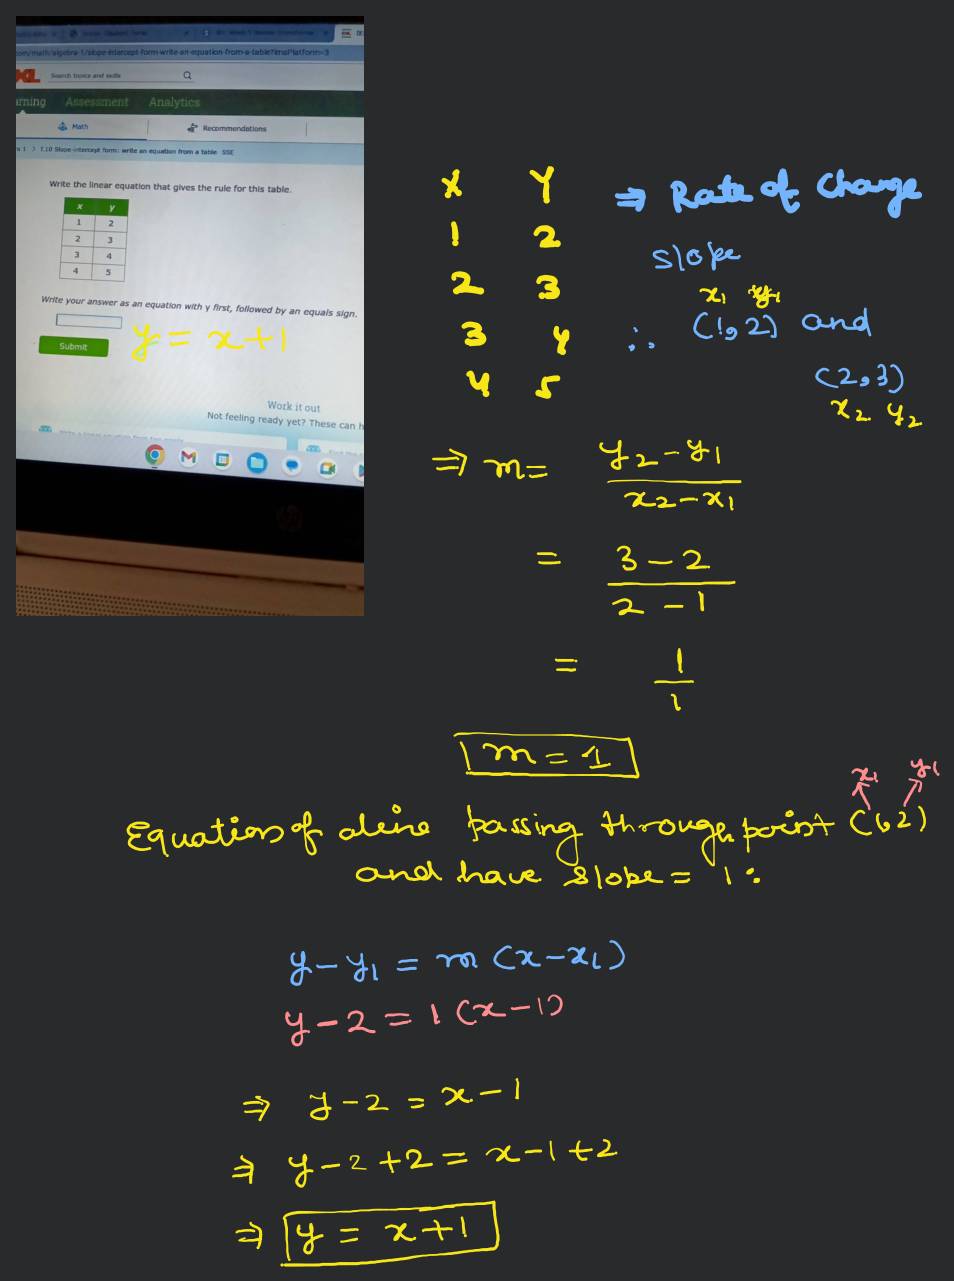 com/math/algebra-1/slope-intercept-form-write-an-equation-from-a-table?imsPlatform=3
XL Search topics and skills
rning Assessment Analytics
Math Recommendations
a 1 > T.10 Slope-intercept form: write an equation from a table SSE
Write the linear equation that gives the rule for this table.
x y
1 2
2 3
3 4
4 5
Write your answer as an equation with y first, followed by an equals sign.
Submit
y = x+1
Work it out
Not feeling ready yet? These can h
X Y
1 2
2 3
3 4
4 5
⇒ Rate of change
slope
x1 y1
∴ (1,2) and
(2,3)
x2 y2
⇒ m = y2-y1 / x2-x1
= 3-2 / 2-1
= 1/1
m = 1
x1 y1
Equation of aline passing through point (1,2)
and have slope = 1:
y-y1 = m (x-x1)
y-2 = 1 (x-1)
⇒ y-2 = x-1
⇒ y-2+2 = x-1+2
⇒ y = x+1